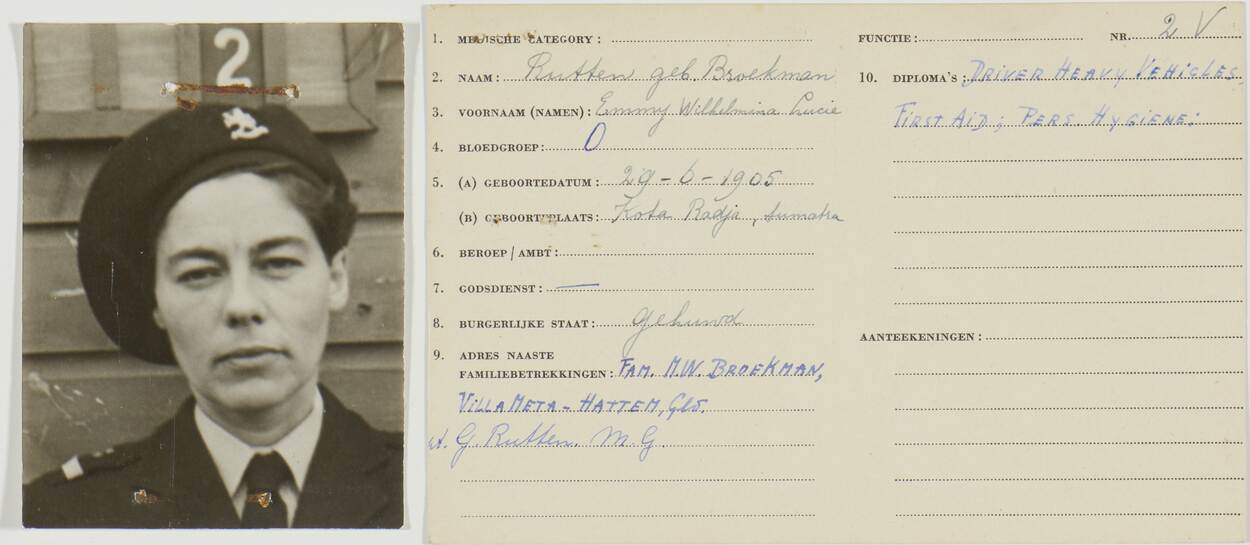 2
1. MEDISCHE CATEGORY:
2. NAAM: Rutten geb. Broekman
3. VOORNAAM (NAMEN): Emmy Wilhelmina Lucie
4. BLOEDGROEP: O
5. (A) GEBOORTEDATUM: 29-6-1905
(B) GEBOORTEPLAATS: Kota Radja, Sumatra
6. BEROEP/AMBT:
7. GODSDIENST: —
8. BURGERLIJKE STAAT: gehuwd
9. ADRES NAASTE
FAMILIEBETREKKINGEN: FAM. M.W. BROEKMAN,
VILLA META - HATTEM, Gld.
G. Rutten. M.G.
FUNCTIE: NR. 2 V
10. DIPLOMA'S: DRIVER HEAVY VEHICLES
FIRST AID; PERS HYGIENE;
AANTEEKENINGEN: